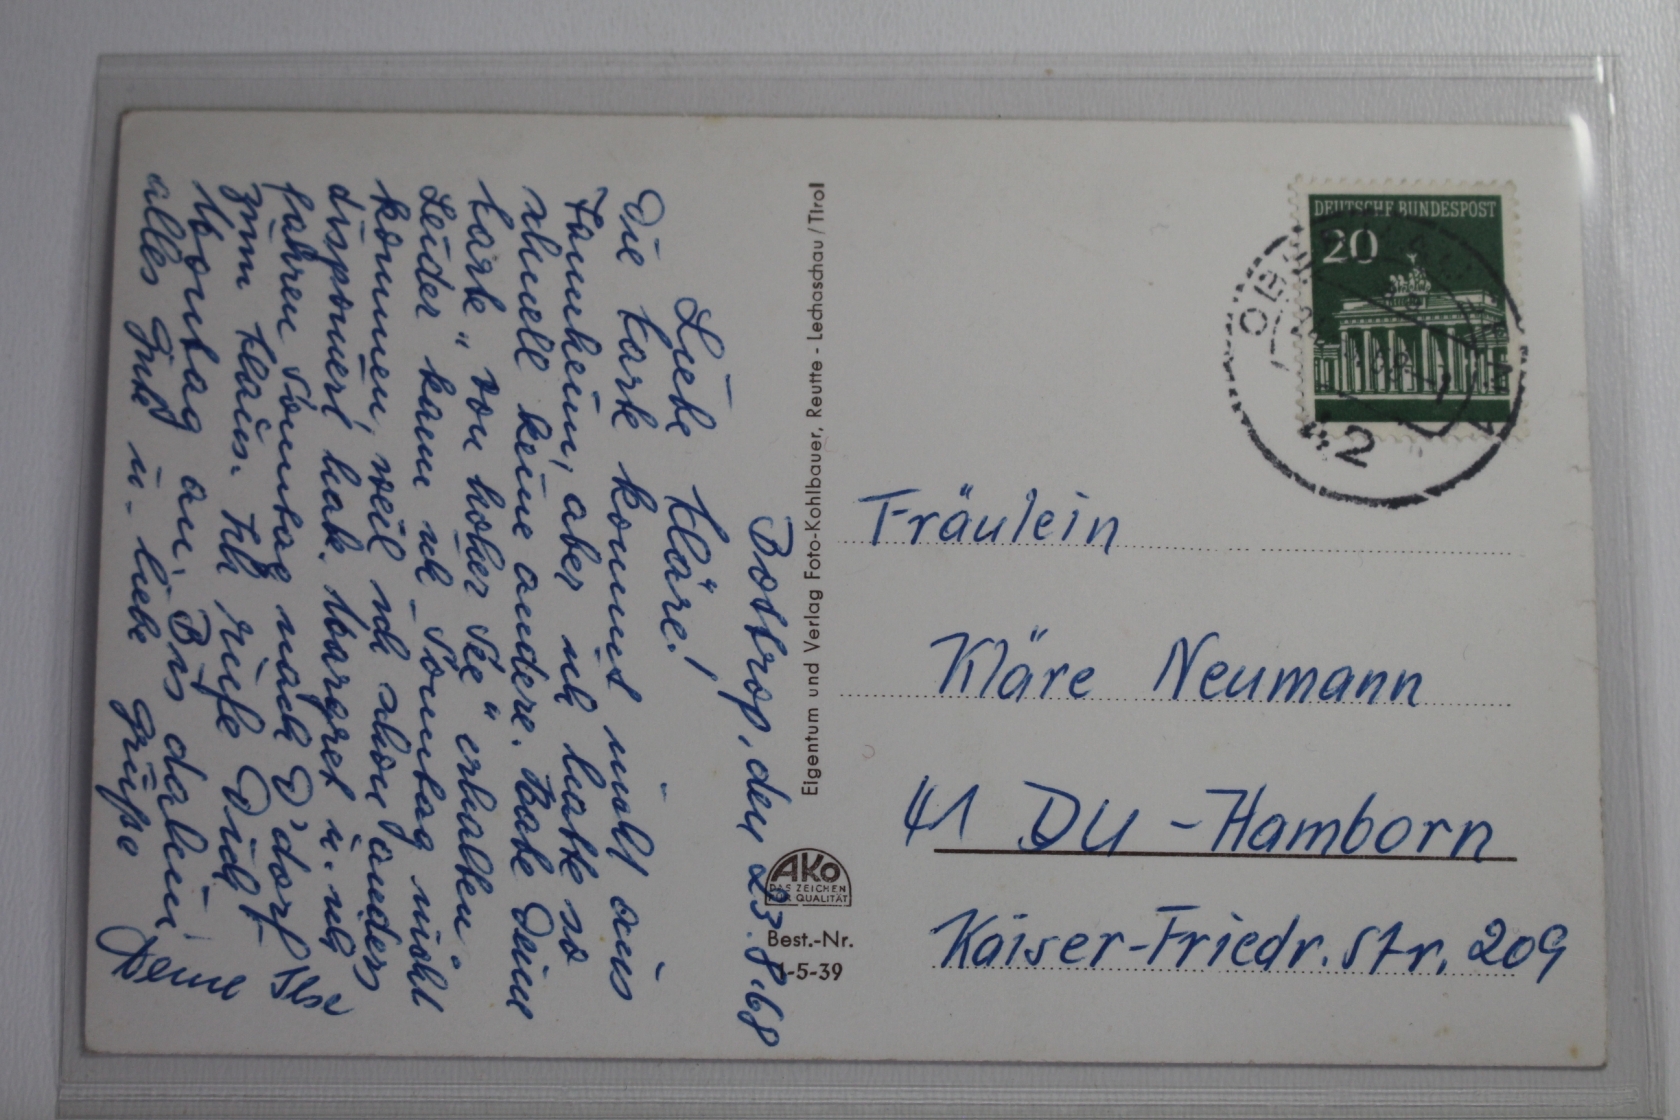 Bottrop, den 23.8.68
Liebe Kläre!
Die Karte kommt nicht aus
Tannheim, aber ich hatte so
schnell keine andere. Habe Deine
Karte "von hoher See" erhalten.
Leider kann ich Sonntag nicht
kommen, weil ich schon anders
disponiert hab. Margret u. ich
fahren Sonntag nach D'dorf
zum Klaus. Ich rufe Dich
Montag an. Bis dahin
alles Gute u. liebe Grüße
Deine Ilse
Eigentum und Verlag Foto-Kohlbauer, Reutte - Lechaschau/Tirol
AKo
DAS ZEICHEN
FÜR QUALITÄT
Best.-Nr.
1-5-39
DEUTSCHE BUNDESPOST
20
42
Fräulein
Kläre Neumann
41 DU-Hamborn
Kaiser-Friedr. Str. 209